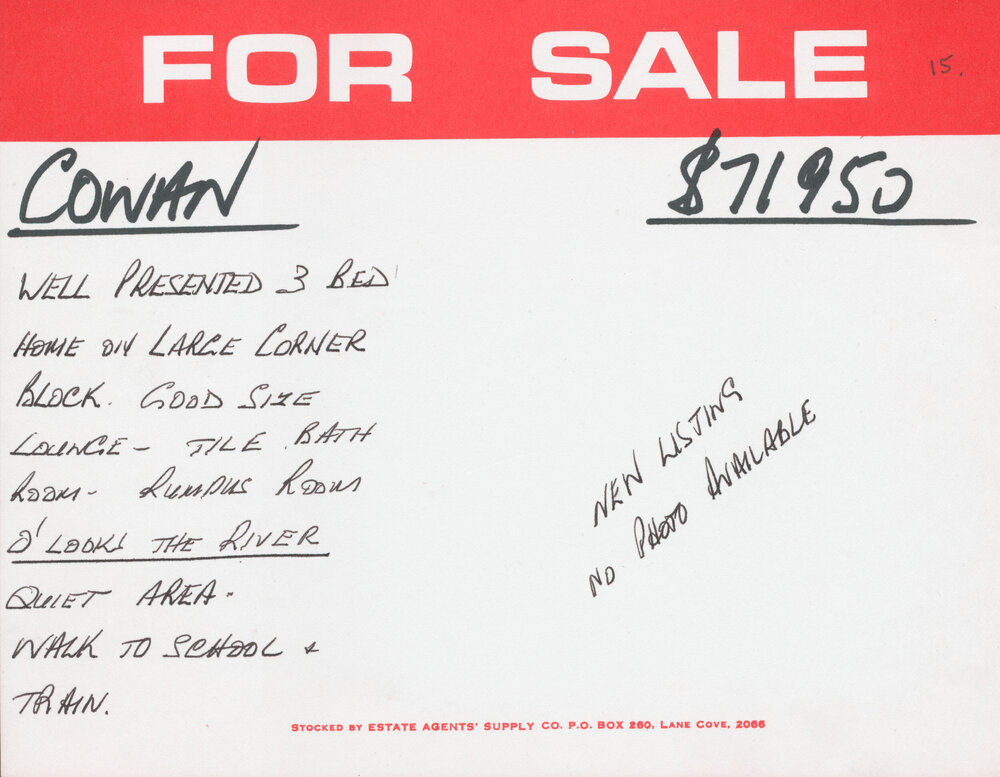 FOR SALE
15.
COWAN
$71950
WELL PRESENTED 3 BED
HOME ON LARGE CORNER
BLOCK. GOOD SIZE
LOUNGE - TILE BATH
ROOM - RUMPUS ROOM
O'LOOKS THE RIVER
QUIET AREA.
WALK TO SCHOOL &
TRAIN.
NEW LISTING
NO PHOTO AVAILABLE
STOCKED BY ESTATE AGENTS' SUPPLY CO. P.O. BOX 260, LANE COVE, 2066